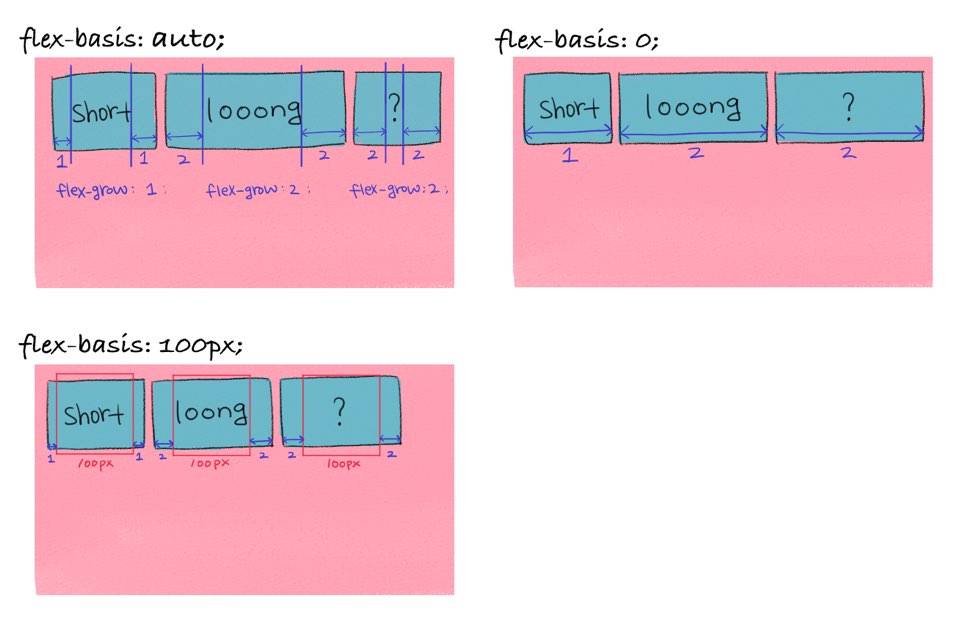 flex-basis: auto;
short looong ?
1 1 2 2 2 2
flex-grow: 1; flex-grow: 2; flex-grow: 2;
flex-basis: 0;
short looong ?
1 2 2
flex-basis: 100px;
short loong ?
1 100px 1 2 100px 2 2 100px 2